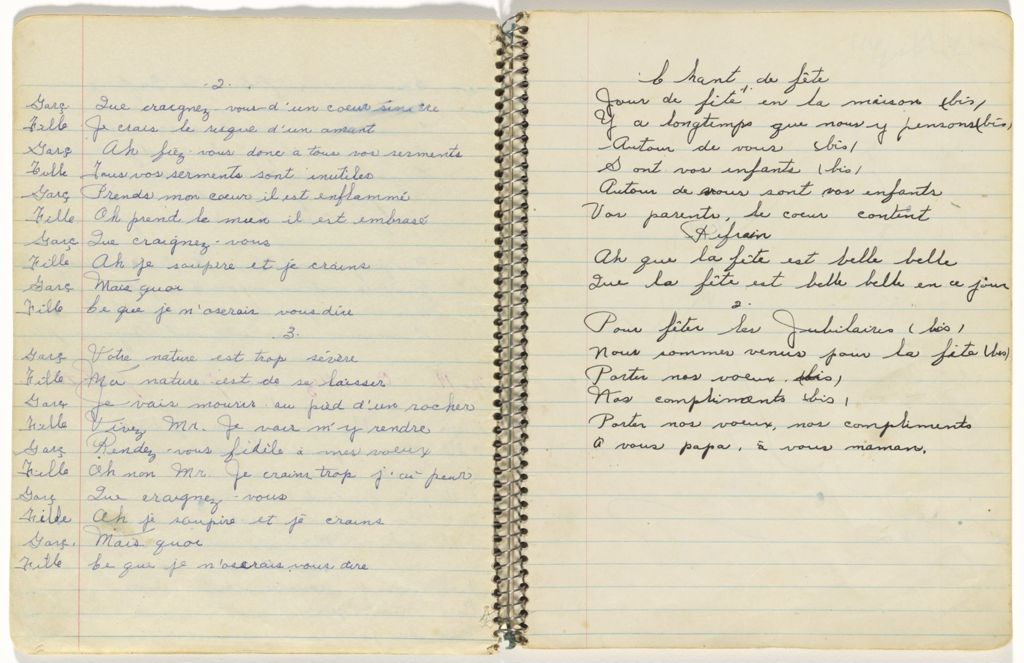 2.
Garç Que craignez-vous d'un coeur sincère
Fille Je crais le risque d'un amant
Garç Ah fiez-vous donc a tous vos serments
Fille Tous vos serments sont inutiles
Garç Prends mon coeur il est enflammé
Fille Oh prend le mien il est embrasé
Garç Que craignez-vous
Fille Ah je soupire et je crains
Garç Mais quoi
Fille Ce que je n'oserais vous dire
3.
Garç Votre nature est trop sévère
Fille Ma nature est de se laisser
Garç Je vais mourir au pied d'un rocher
Fille Vivez Mr. Je vais m'y rendre
Garç Rendez-vous fidile à mes voeux
Fille Oh non Mr. Je crains trop j'ai peur
Garç Que craignez-vous
Fille Ah je soupire et je crains
Garç. Mais quoi
Fille Ce que je n'oserais vous dire
Chant de fête
1.
Jour de fête en la maison (bis)
Y a longtemps que nous y pensons (bis)
Autour de vous (bis)
Sont vos enfants (bis)
Autour de vous sont vos enfants
Vos parents, le coeur content
Refrain
Ah que la fête est belle belle
Que la fête est belle belle en ce jour
2.
Pour fêter les Jubilaires (bis)
Nous sommes venus pour la fête (bis)
Porter nos voeux, (bis)
Nos compliments (bis)
Porter nos voeux, nos compliments
A vous papa, à vous maman.